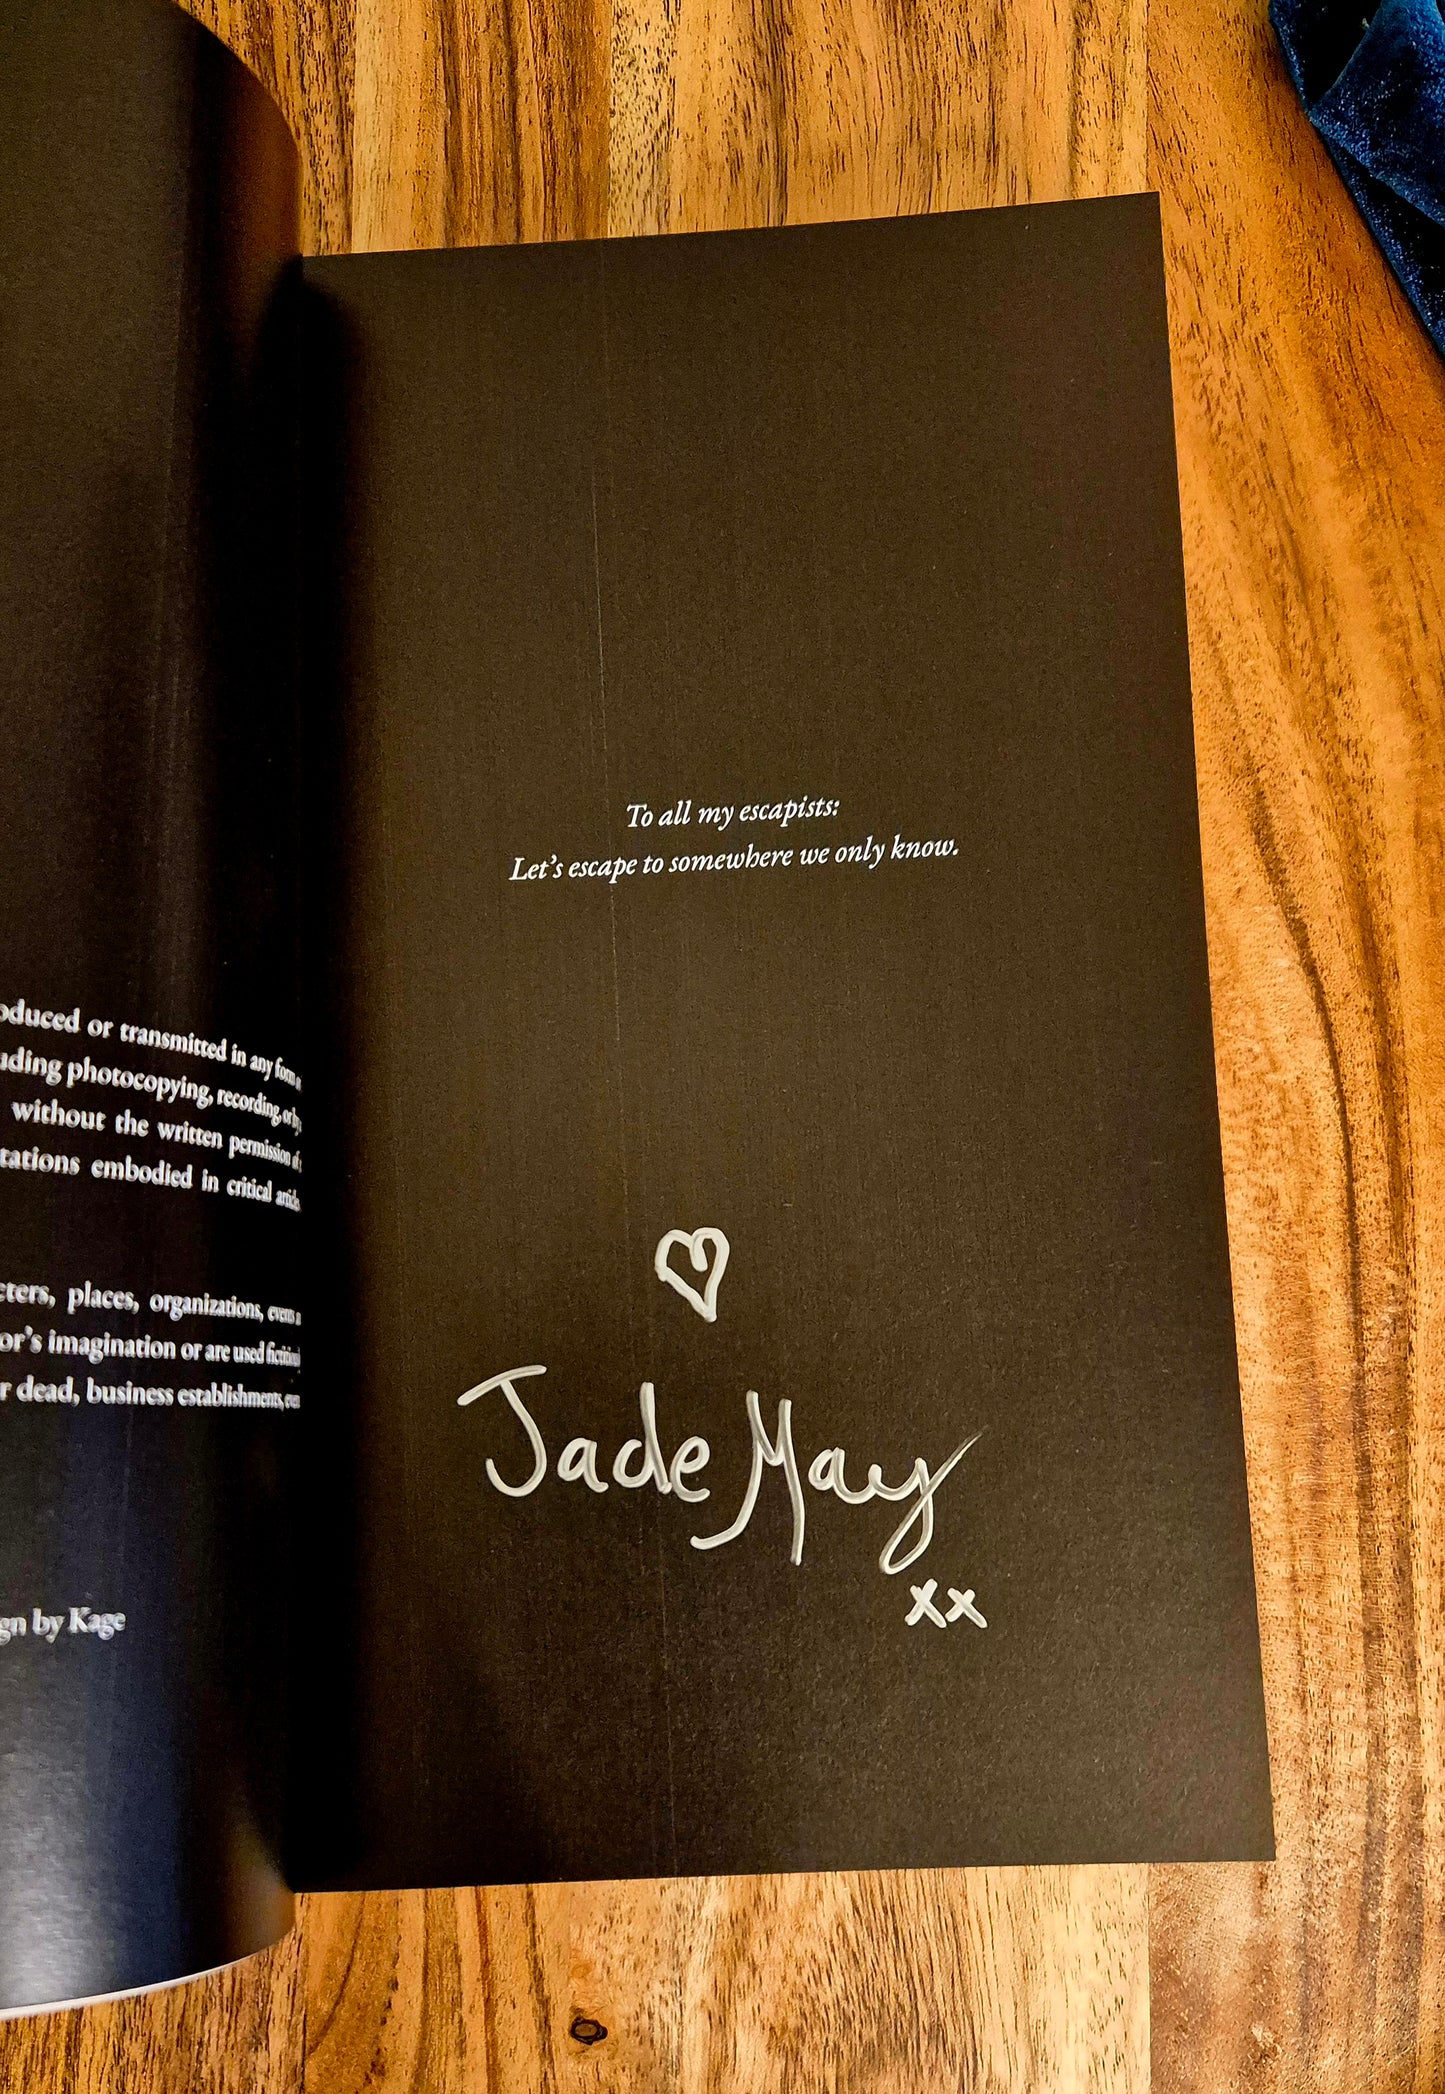 oduced or transmitted in any form
uding photocopying, recording, or by
without the written permission of
tations embodied in critical
cters, places, organizations, events
or's imagination or are used
r dead, business establishments,
gn by Kage
To all my escapists:
Let's escape to somewhere we only know.
Jade May
xx